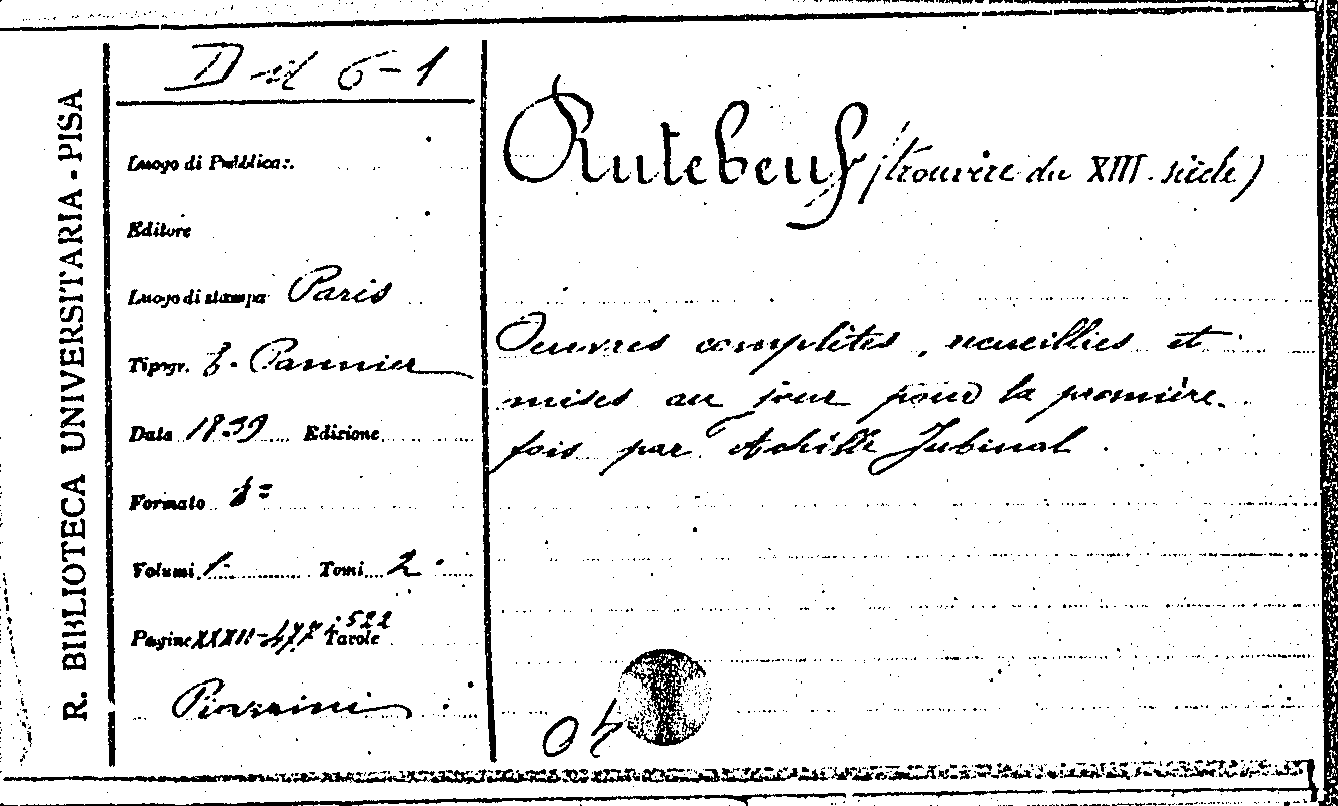 R. BIBLIOTECA UNIVERSITARIA - PISA
D d 6-1
Luogo di Pubblicaz.
Editore
Luogo di stampa Paris
Tipogr. E. Pannier
Data 1839 Edizione
Formato 8=
Volumi 1. Tomi 2.
Pagine XXXII-477; 522 Tavole
Piazzini
Rutebeuf (trouvère du XIII. siècle)
Oeuvres complètes, recueillies et
mises au jour pour la première
fois par Achille Jubinal
04